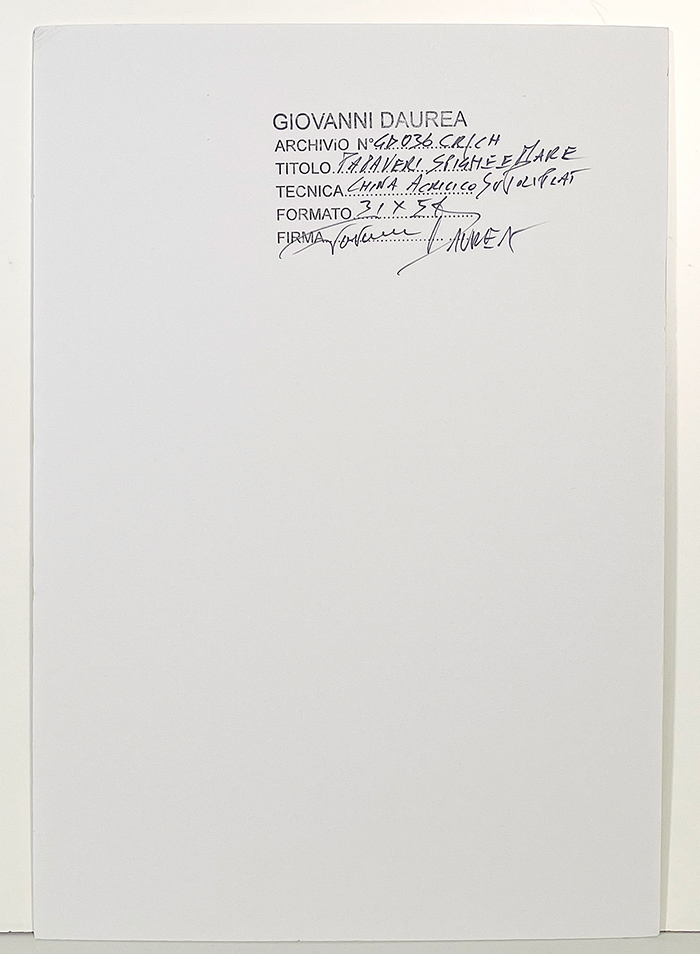 GIOVANNI DAUREA
ARCHIVIO N° GD036 CR/CH
TITOLO PAPAVERI SPIGHE E MARE
TECNICA CHINA ACRILICO SU
FORMATO 31 X 54
FIRMA Giovanni DAUREA